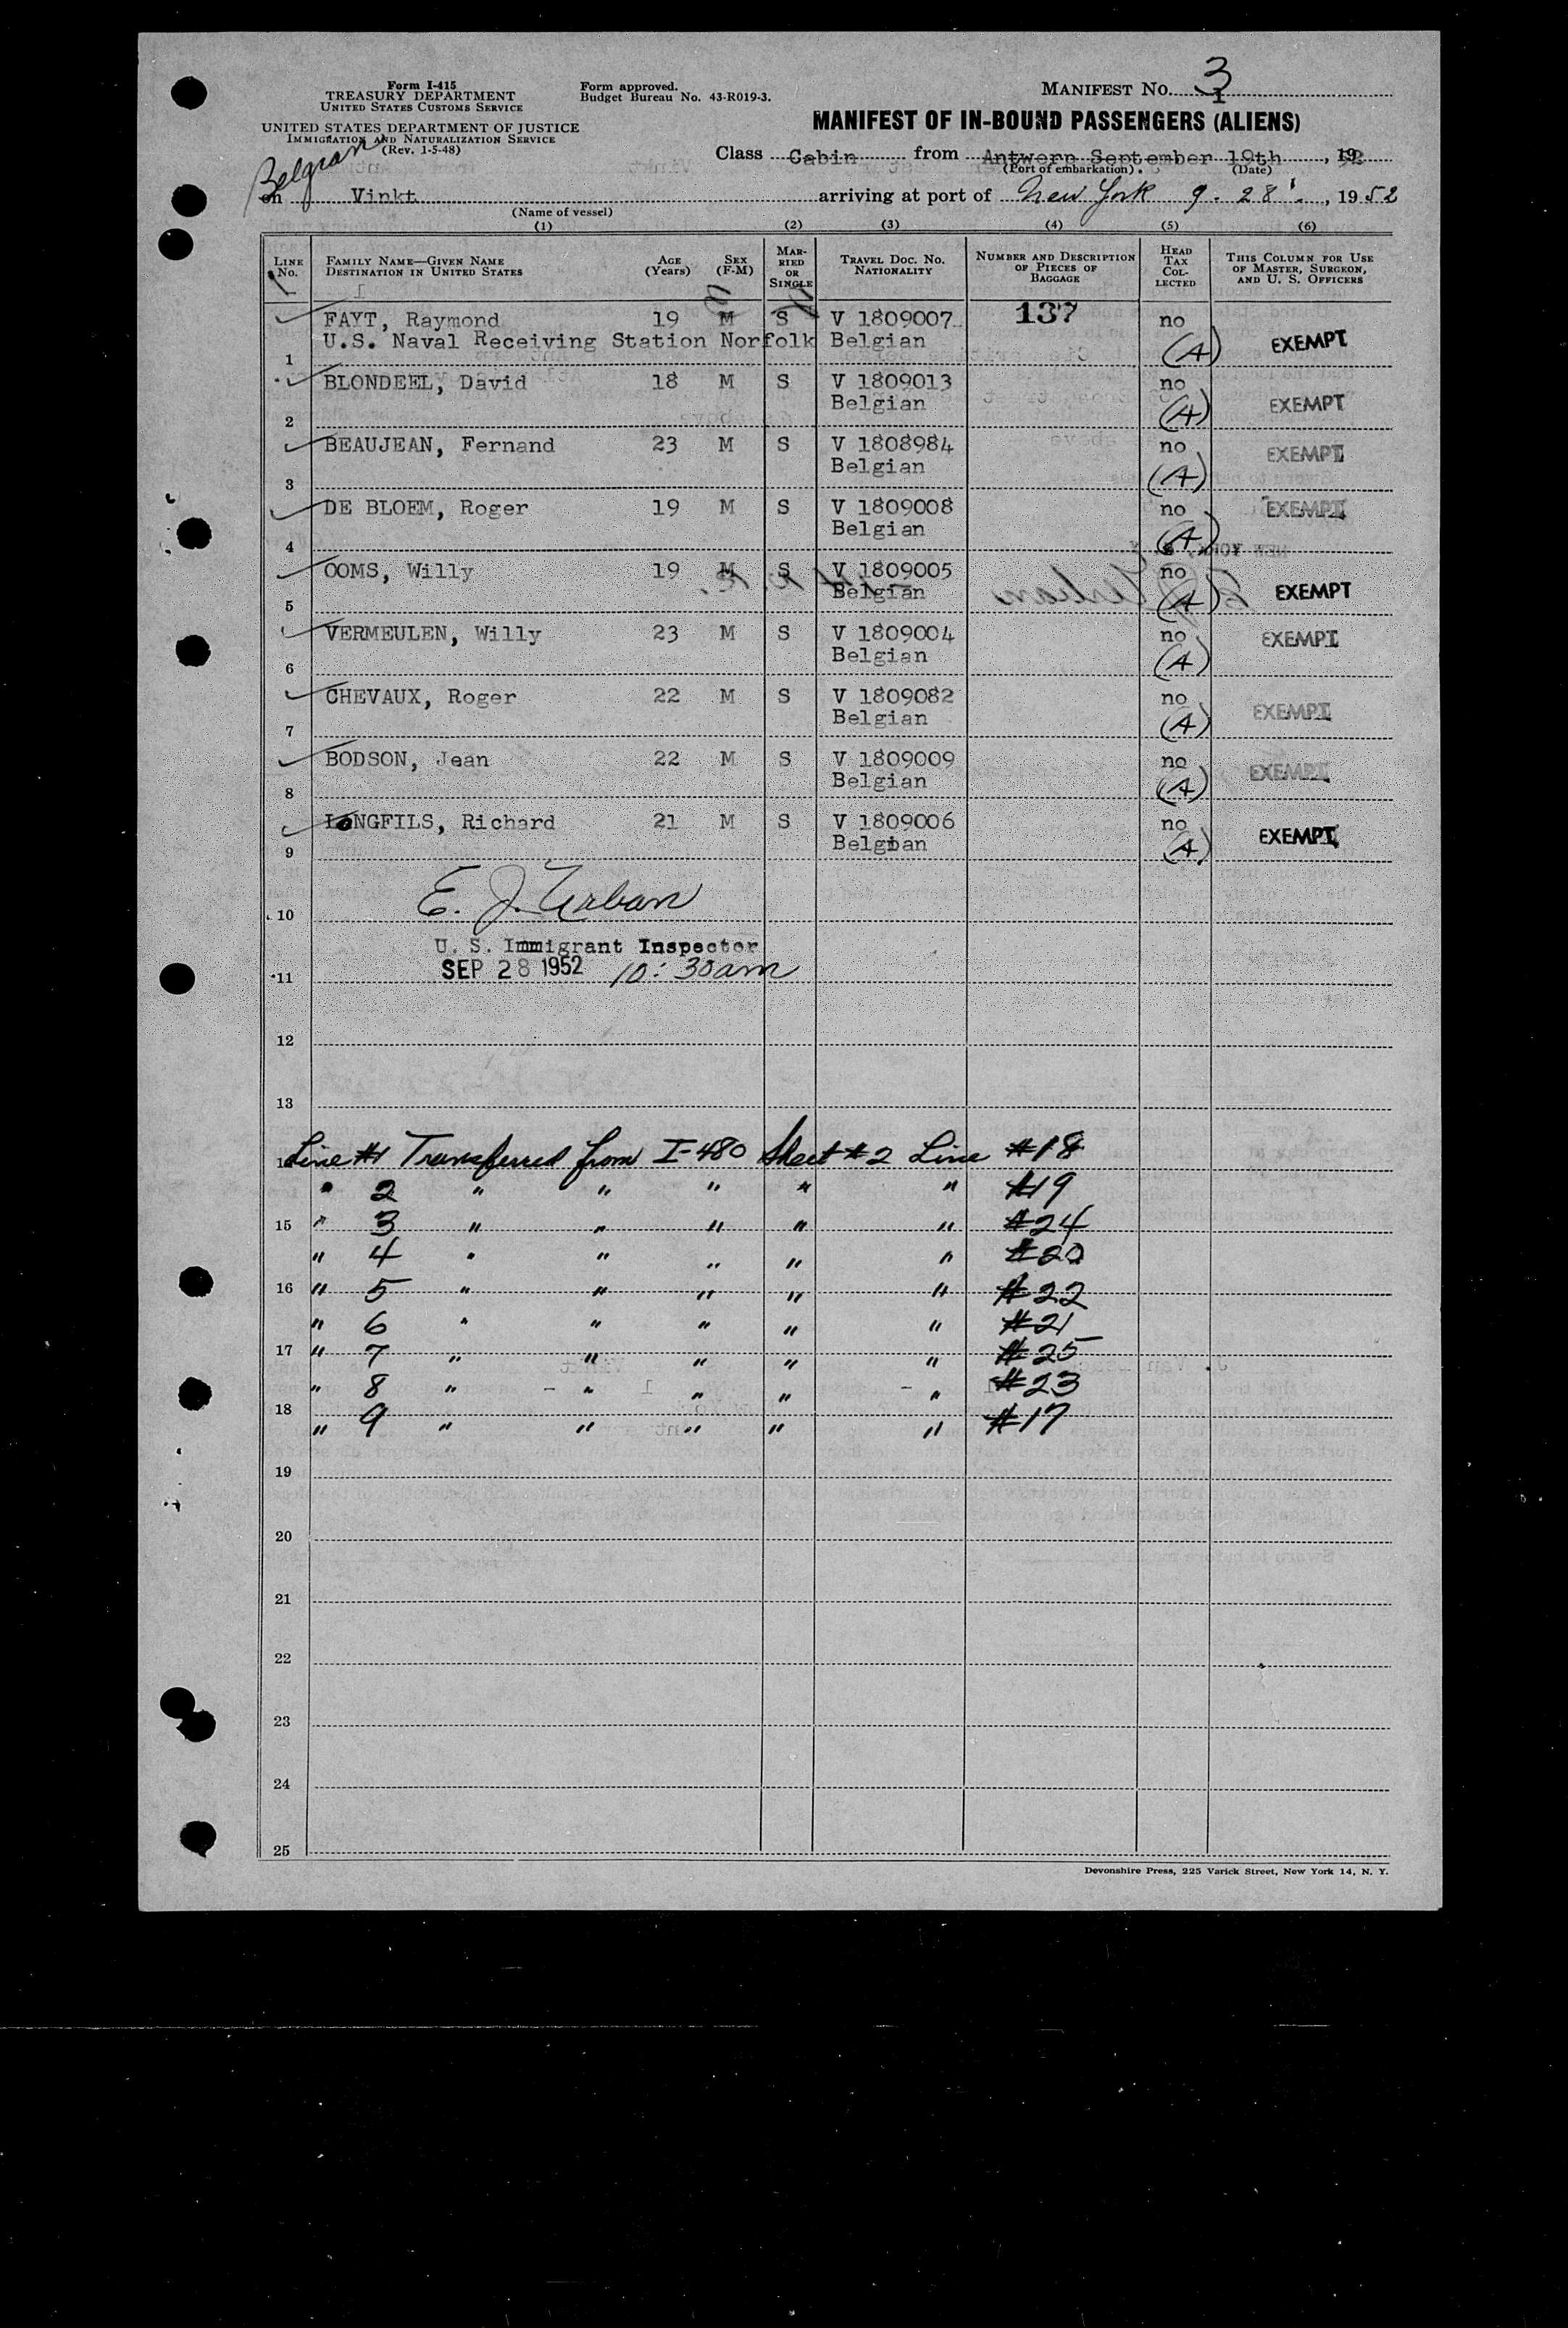 Form I-415
TREASURY DEPARTMENT
UNITED STATES CUSTOMS SERVICE
UNITED STATES DEPARTMENT OF JUSTICE
IMMIGRATION AND NATURALIZATION SERVICE
(Rev. 1-5-48)
Form approved.
Budget Bureau No. 43-R019-3.
MANIFEST No. 3
1
MANIFEST OF IN-BOUND PASSENGERS (ALIENS)
Class Cabin from Antwerp September 19th, 1952
(Port of embarkation) (Date)
Belgian
on Vinkt arriving at port of New York 9. 28, 1952
(Name of vessel)
(1) (2) (3) (4) (5) (6)
LINE No. FAMILY NAME—GIVEN NAME DESTINATION IN UNITED STATES AGE (Years) SEX (F-M) MARRIED OR SINGLE TRAVEL DOC. NO. NATIONALITY NUMBER AND DESCRIPTION OF PIECES OF BAGGAGE HEAD TAX COLLECTED THIS COLUMN FOR USE OF MASTER, SURGEON, AND U. S. OFFICERS
FAYT, Raymond 19 M S V 1809007 137 no
1 U.S. Naval Receiving Station Norfolk Belgian (A) EXEMPT
BLONDEEL, David 18 M S V 1809013 no
2 Belgian (A) EXEMPT
BEAUJEAN, Fernand 23 M S V 1808984 no EXEMPT
3 Belgian (A)
DE BLOEM, Roger 19 M S V 1809008 no EXEMPT
4 Belgian (A)
OOMS, Willy 19 M S V 1809005 no
5 Belgian (A) EXEMPT
VERMEULEN, Willy 23 M S V 1809004 no EXEMPT
6 Belgian (A)
CHEVAUX, Roger 22 M S V 1809082 no EXEMPT
7 Belgian (A)
BODSON, Jean 22 M S V 1809009 no EXEMPT
8 Belgian (A)
LONGFILS, Richard 21 M S V 1809006 no EXEMPT
9 Belgian (A)
10 E. J. Urban
U. S. Immigrant Inspector
11 SEP 28 1952 10:30am
12
13
Line #1 Transferred from I-480 Sheet #2 Line #18
" 2 " " " " " #19
15 " 3 " " " " " #24
" 4 " " " " " #20
16 " 5 " " " " " #22
" 6 " " " " " #21
17 " 7 " " " " " #25
" 8 " " " " " #23
18 " 9 " " " " " #17
19
20
21
22
23
24
25
Devonshire Press, 225 Varick Street, New York 14, N. Y.